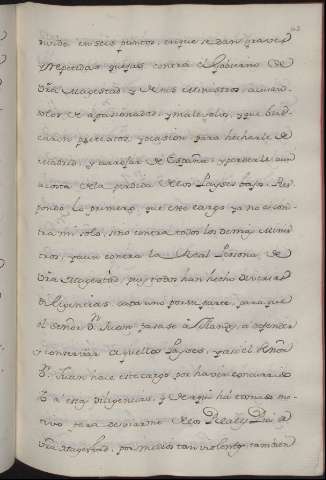 divide en seis puntos, en que se dan graves
y repetidas quejas contra el Gobierno de
Vra Magestad, y de sus Ministros, acusan
de apasionados, y malevolos, y que bus
caron pretextos, y ocasion para hecharle de
Madrid, y arrojar de España, y perderle aun
a costa de la perdida de los Payses bajos. Res
pondo lo primero, que este cargo ya no es con
tra mi solo, sino contra todos los demas Minis
tros, y aun contra la Real Persona de
Vra Magestad, pues todos han hecho diversas
diligencias cada uno por su parte, para que
el Señor Dn. Juan pasase à Flandes, a defender
y conservar aquellos Payses, y assi el Señor
D. Juan hace este cargo por haver concurrido
Yo a estas diligencias, y de aqui ha tomado mo
tivo para desviarme de los Reales Pies de
Vra Magestad, por medios tan violentos, tambien